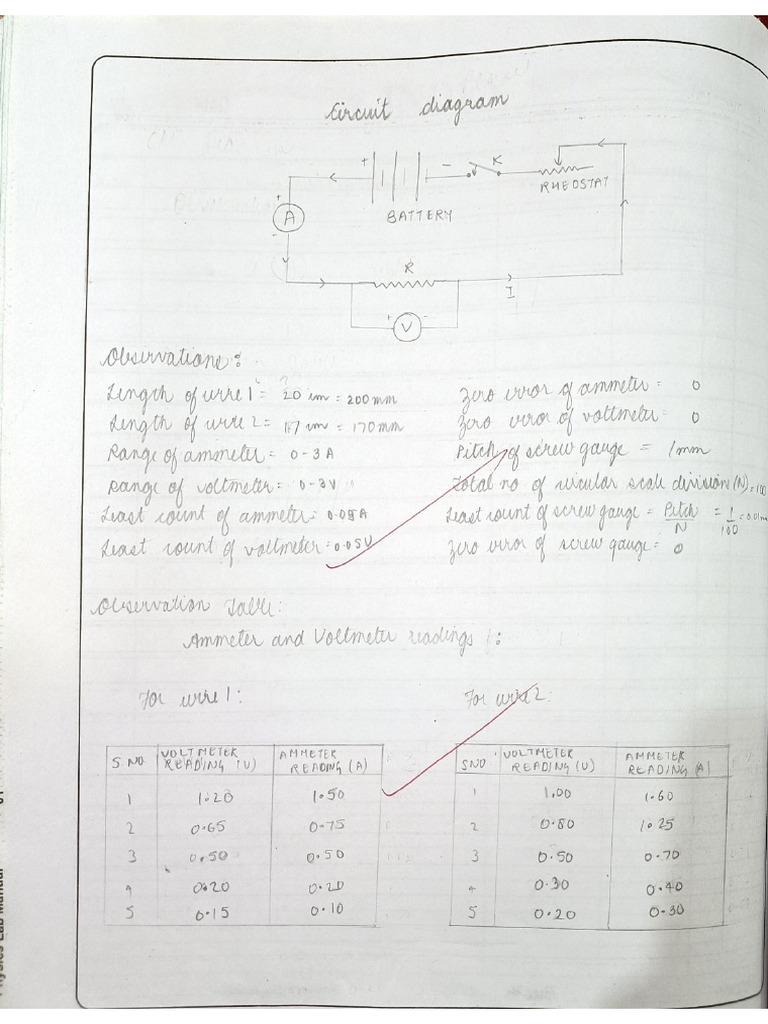 Circuit diagram
+ - K
RHEOSTAT
BATTERY
+
A
-
R
I
+ V -
Observations:
Length of wire 1 = 20 cm = 200 mm
Length of wire 2 = 17 cm = 170 mm
Range of ammeter = 0-3 A
Range of voltmeter = 0-3V
Least count of ammeter = 0.05A
Least count of voltmeter = 0.05V
Zero error of ammeter = 0
Zero error of voltmeter = 0
Pitch of screw gauge = 1mm
Total no of circular scale division (N) = 100
Least count of screw gauge = Pitch/N = 1/100 = 0.01mm
Zero error of screw gauge = 0
Observation Table:
Ammeter and Voltmeter readings :
For wire 1:
S.NO VOLTMETER READING (V) AMMETER READING (A)
1 1.20 1.50
2 0.65 0.75
3 0.50 0.50
4 0.20 0.20
5 0.15 0.10
For wire 2:
SNO. VOLTMETER READING (V) AMMETER READING (A)
1 1.00 1.60
2 0.80 1.25
3 0.50 0.70
4 0.30 0.40
5 0.20 0.30
Physics Lab Manual